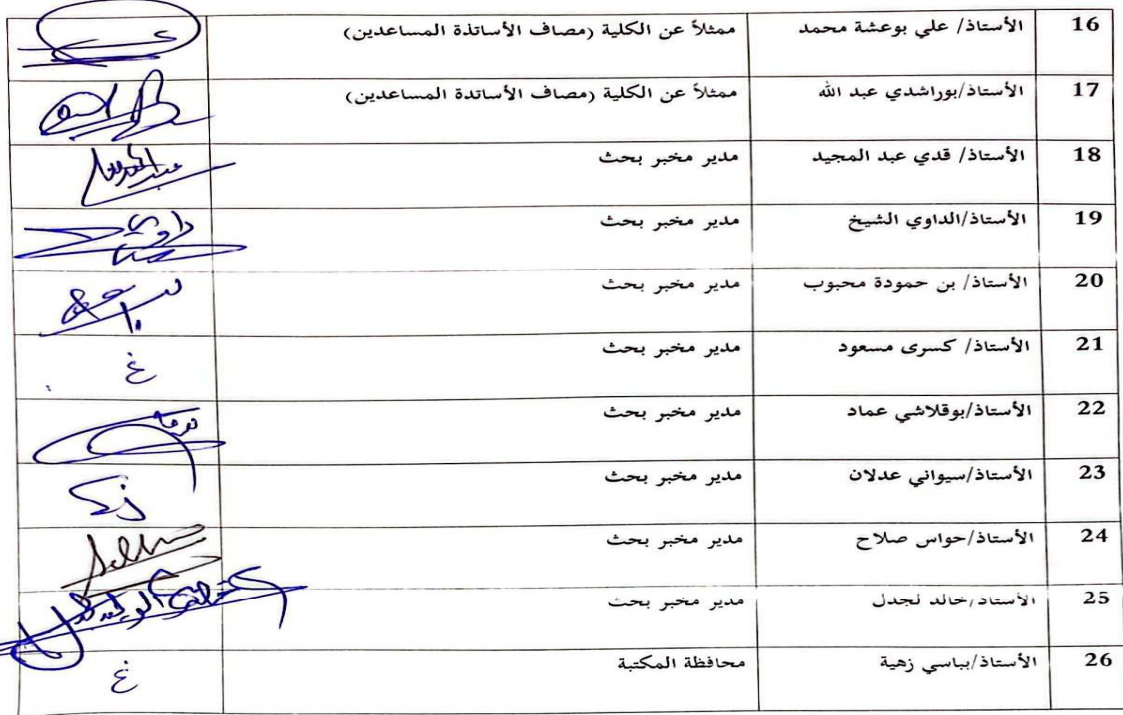 16 الأستاذ/ علي بوعشة محمد ممثلاً عن الكلية (مصاف الأساتذة المساعدين)
17 الأستاذ/بوراشدي عبد الله ممثلاً عن الكلية (مصاف الأساتدة المساعدين)
18 الأستاذ/ قدي عبد المجيد مدير مخبر بحث
19 الأستاذ/الداوي الشيخ مدير مخبر بحث
20 الأستاذ/ بن حمودة محبوب مدير مخبر بحث
21 الأستاذ/ كسرى مسعود مدير مخبر بحث غ
22 الأستاذ/بوقلاشي عماد مدير مخبر بحث
23 الأستاذ/سيواني عدلان مدير مخبر بحث
24 الأستاذ/حواس صلاح مدير مخبر بحث
25 الأستاذ/خالد لجدل مدير مخبر بحث
26 الأستاذ/بباسي زهية محافظة المكتبة غ